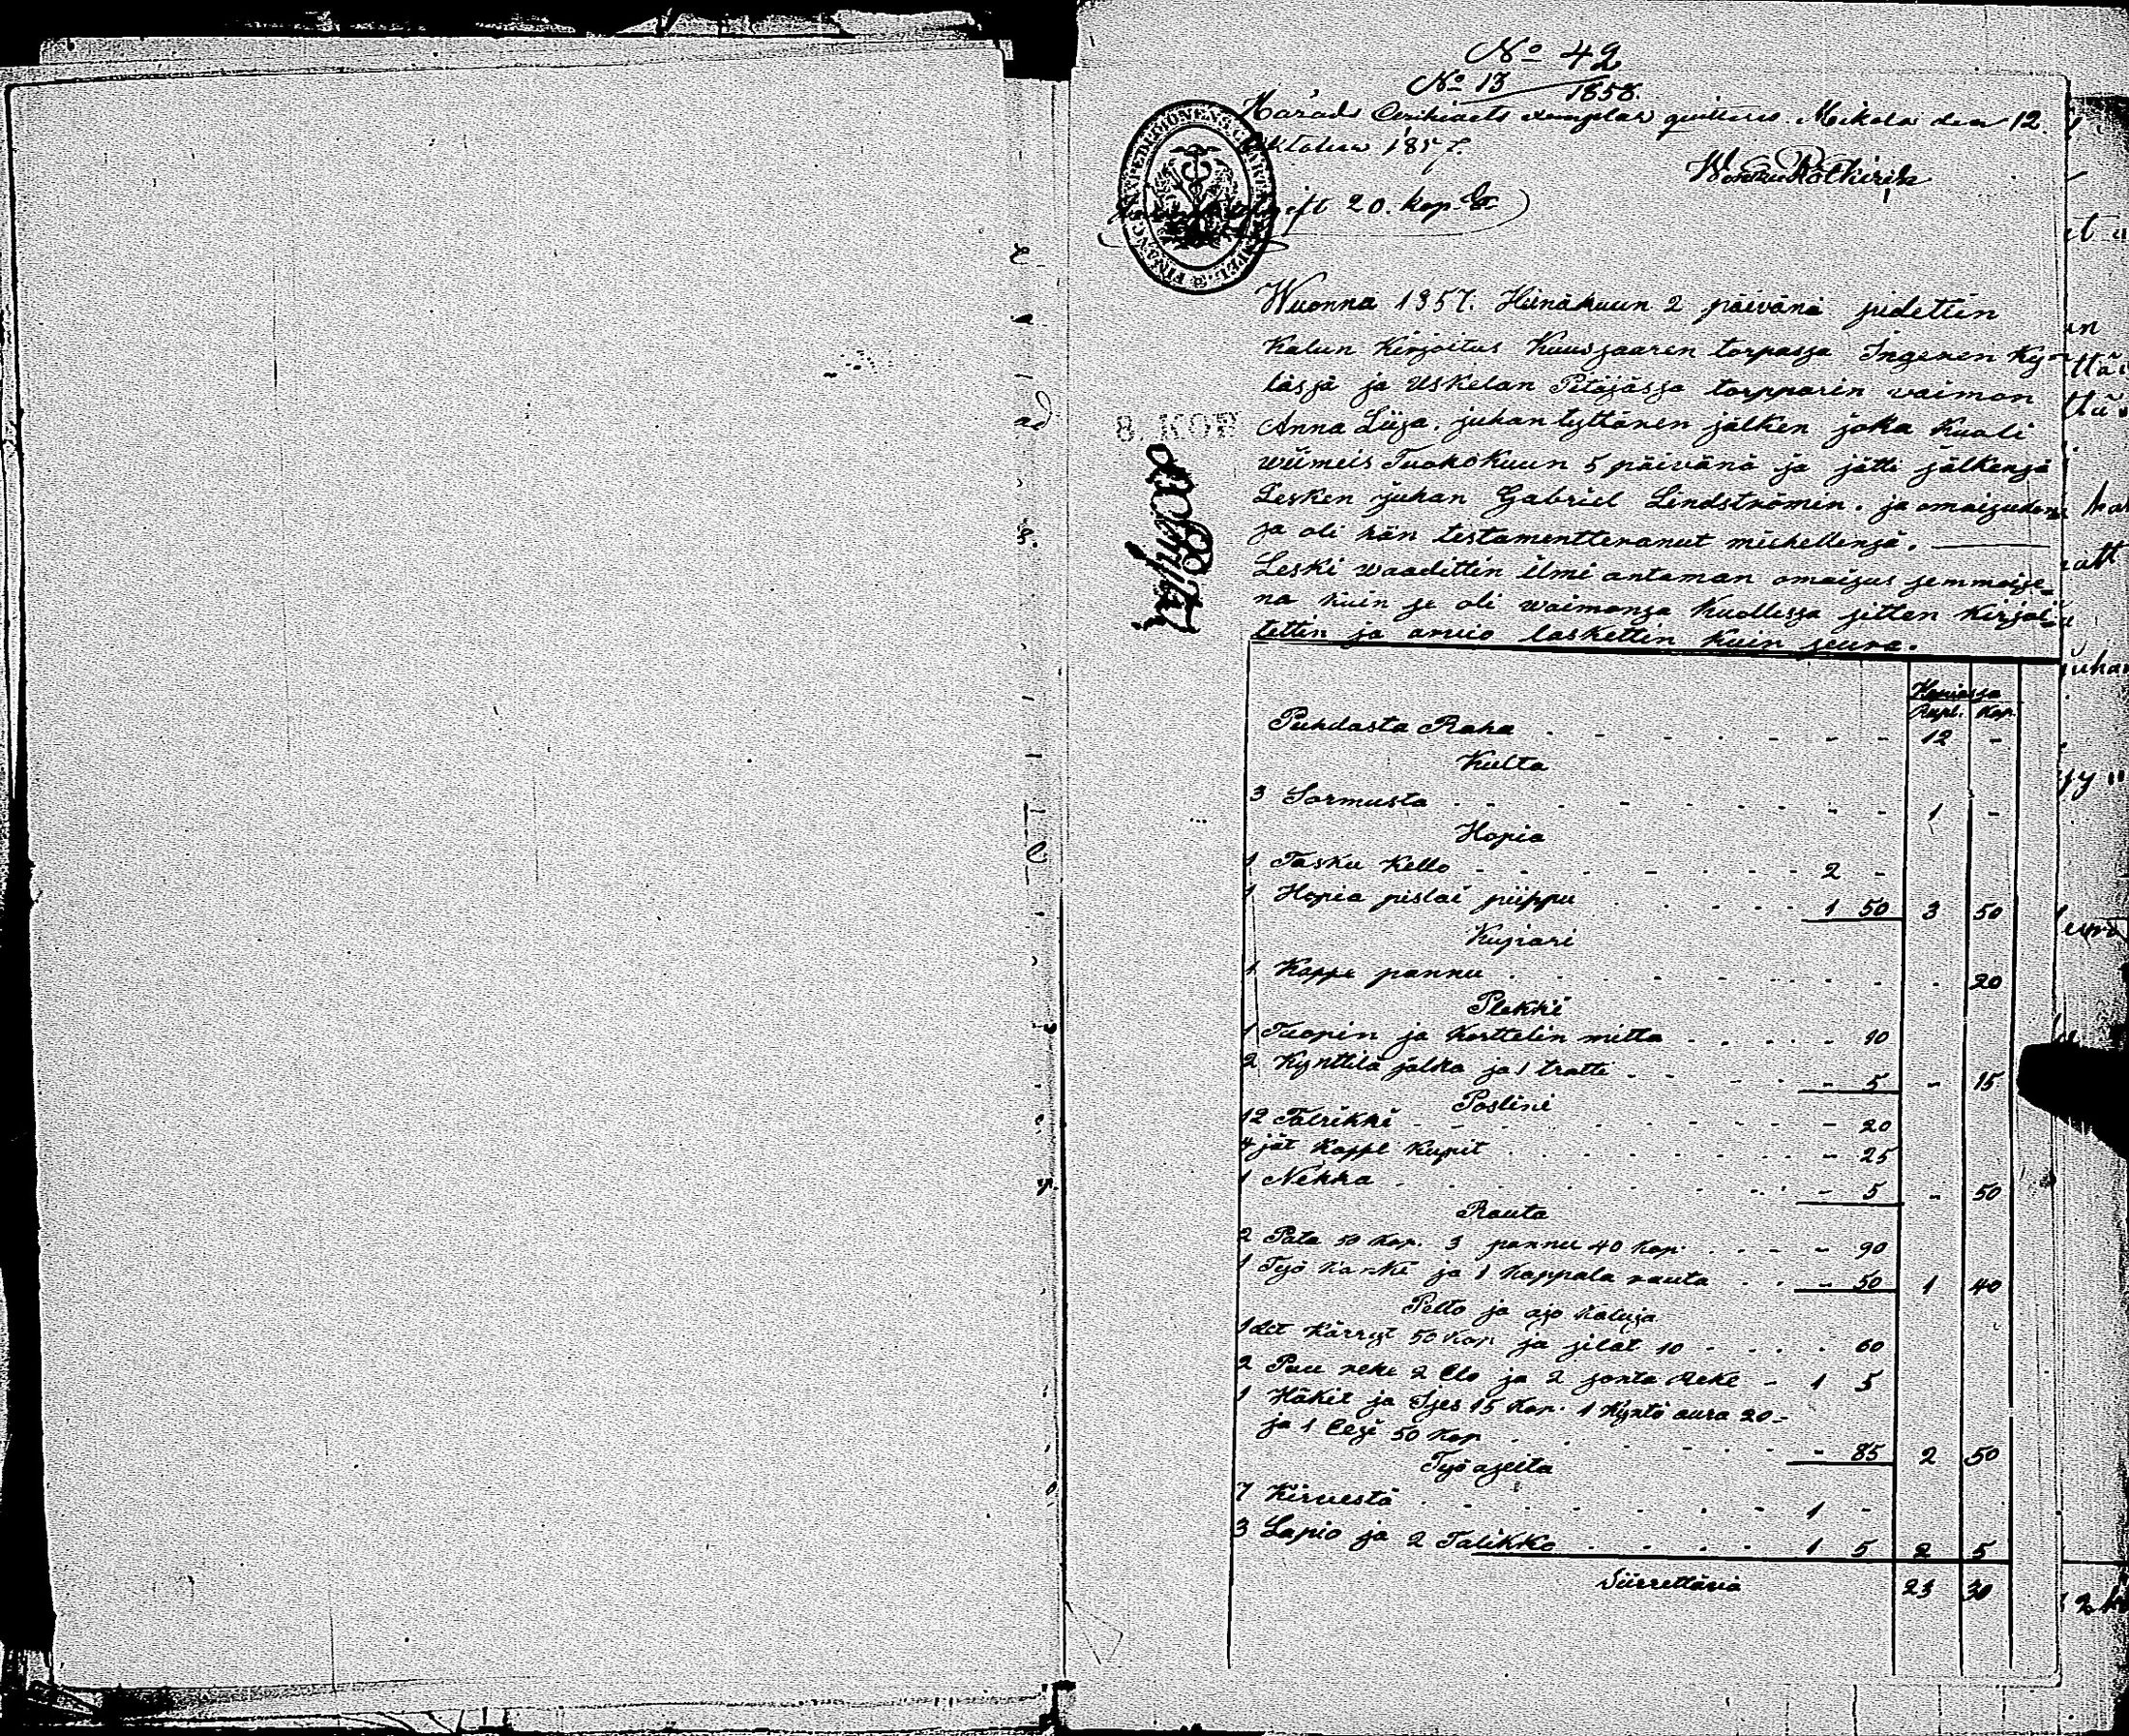 No 42
No 13 1858.
Härads Archivets exemplar qvitteras. Mikola den 12
Oktober 1857.
afgift 20. kop. Sr
8. KOP
Wuonna 1857. Heinäkuun 2 päivänä pidettin
Kalun Kirjoitus Kuusjaaren torpassa Ingeren Ky-
lässä ja Uskelan Pitäjässä torpparin vaimon
Anna Liisa. juhan tyttären jälken joka Kuoli
wiimeis Tuokokuun 5 päivänä ja jätti jälkensä
Lesken juhan Gabriel Lindströmin. ja omaisuden
ja oli hän testamentteranut miehellensä.
Leski waadittin ilmi antaman omaisus semmoise-
na kuin se oli waimonsa Kuollessa sitten Kirjoi-
tettin ja arvio laskettin kuin seura.
Rupl. Kop.
Puhdasta Raha 12 -
Kulta
3 Sormusta 1 -
Hopia
1 Tasku Kello 2 -
1 Hopia pislai piippu 1 50 3 50
Kupari
1 Kappe pannu - 20
Plekki
1 Tuopin ja Korttelin mitta - 10
2 Kynttilä jalka ja 1 tratti - 5 - 15
Poslini
12 Talrikki - 20
4 jät Kappe Kupit - 25
1 Nekka - 5 - 50
Rauta
2 Pata 50 Kop. 3 pannu 40 Kop. - 90
1 Työ Kanki ja 1 Kappala rauta - 50 1 40
Pelto ja ajo Kaluja
1 det Kärryt 50 Kop ja silat 10 - 60
2 Puu reke 2 Elo ja 2 sonta Reke - 1 5
1 Häkit ja Sjes 15 Kop. 1 Kyntö aura 20 -
ja 1 Eesi 50 Kop - 85 2 50
Työ aseita
7 Kirvestä 1 -
3 Lapio ja 2 Talikko 1 5 2 5
Siirrettävä 23 30